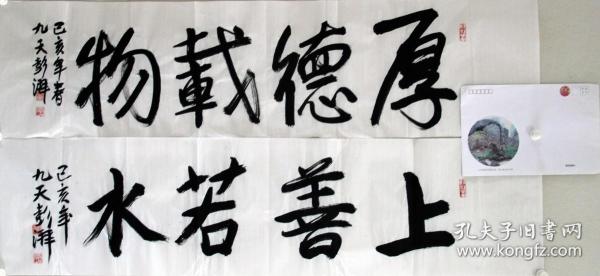 厚德載物
己亥年春
九天彭湃
上善若水
己亥年
九天彭湃
孔夫子旧书网
www.kongfz.com